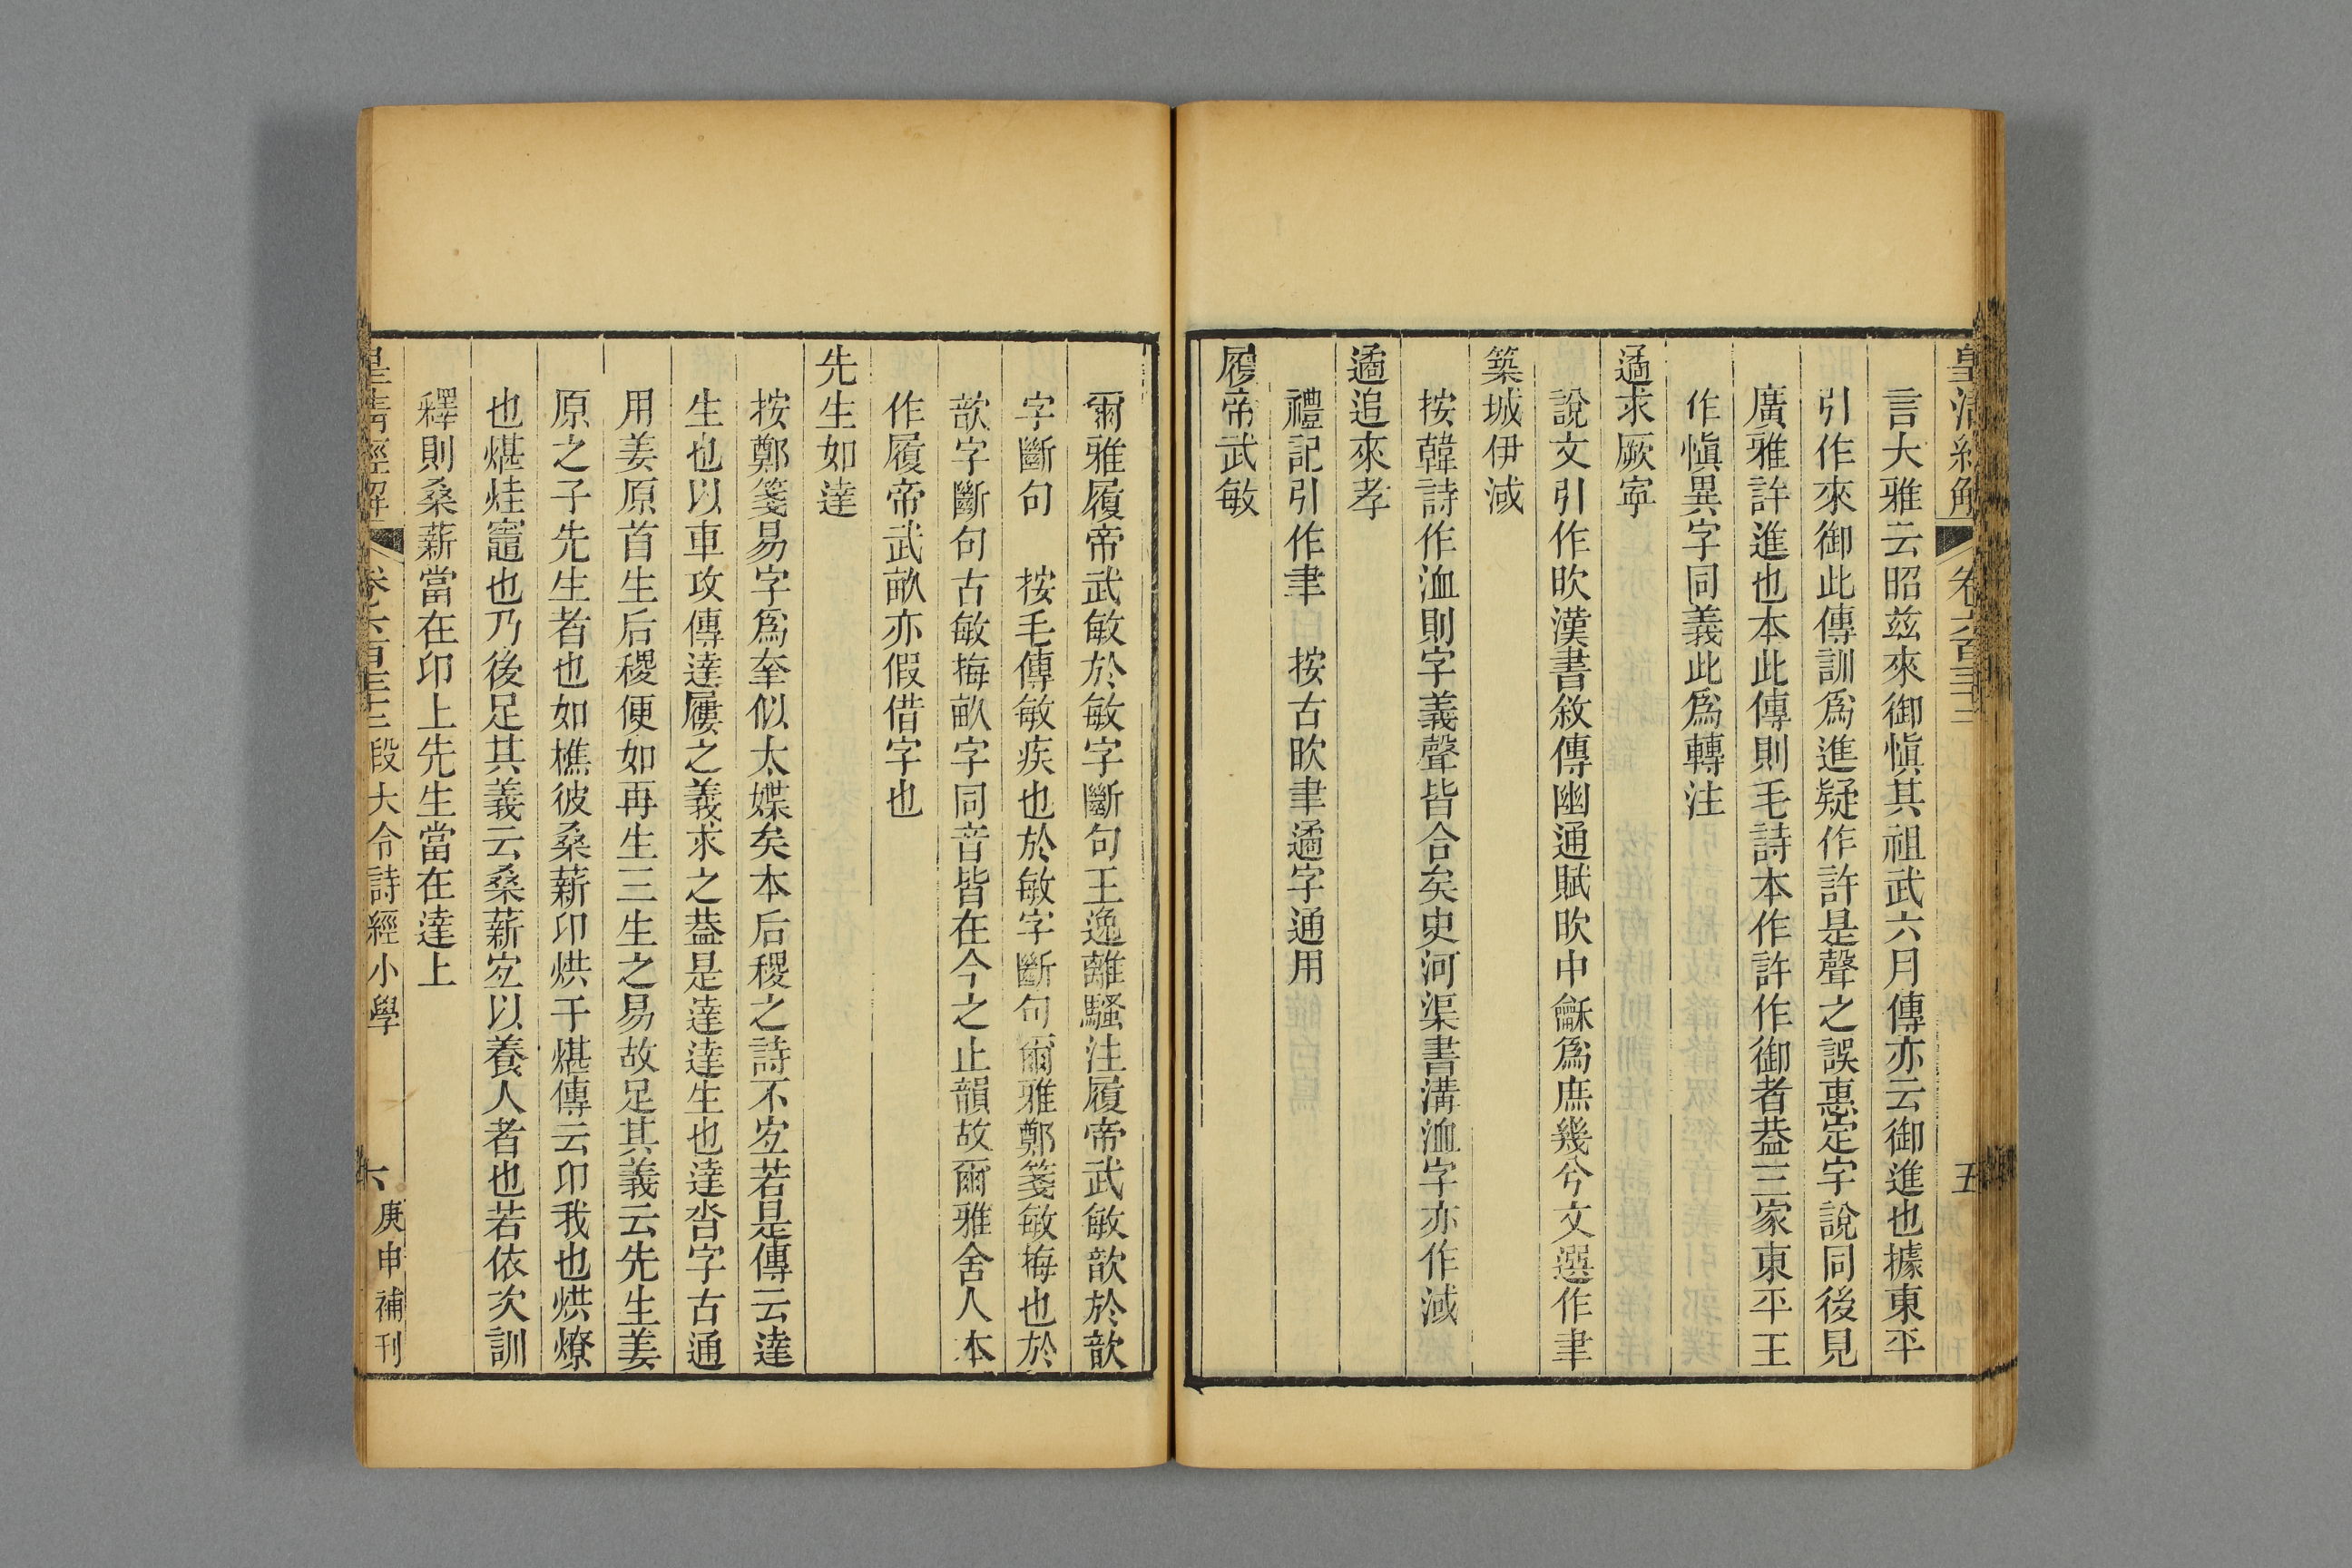 皇清經解 卷六百三十三 五
言大雅云昭兹來御慎其祖武六月傳亦云御進也據東平
引作來御此傳訓爲進疑作許是聲之誤惠定宇說同後見
廣雅許進也本此傳則毛詩本作許作御者葢三家東平王
作愼異字同義此爲轉注
遹求厥寧
說文引作欥漢書敘傳幽通賦欥中龢爲庶幾兮文選作聿
築城伊淢
按韓詩作洫則字義聲皆合矣史河渠書溝洫字亦作淢
遹追來孝
禮記引作聿 按古欥聿遹字通用
履帝武敏
爾雅履帝武敏於敏字斷句王逸離騷注履帝武敏歆於歆
字斷句 按毛傳敏疾也於敏字斷句爾雅鄭箋敏梅也於
歆字斷句古敏梅畝字同音皆在今之止韻故爾雅舍人本
作履帝武畝亦假借字也
先生如達
按鄭箋易字爲羍似太媟矣本后稷之詩不宜若是傳云達
生也以車攻傳達屨之義求之葢是達達生也達沓字古通
用姜原首生后稷便如再生三生之易故足其義云先生姜
原之子先生者也如樵彼桑薪卬烘于煁傳云卬我也烘燎
也煁烓竈也乃後足其義云桑薪宜以養人者也若依次訓
釋則桑薪當在卬上先生當在達上
皇清經解 卷六百三十三 段大令詩經小學 六 庚申補刊